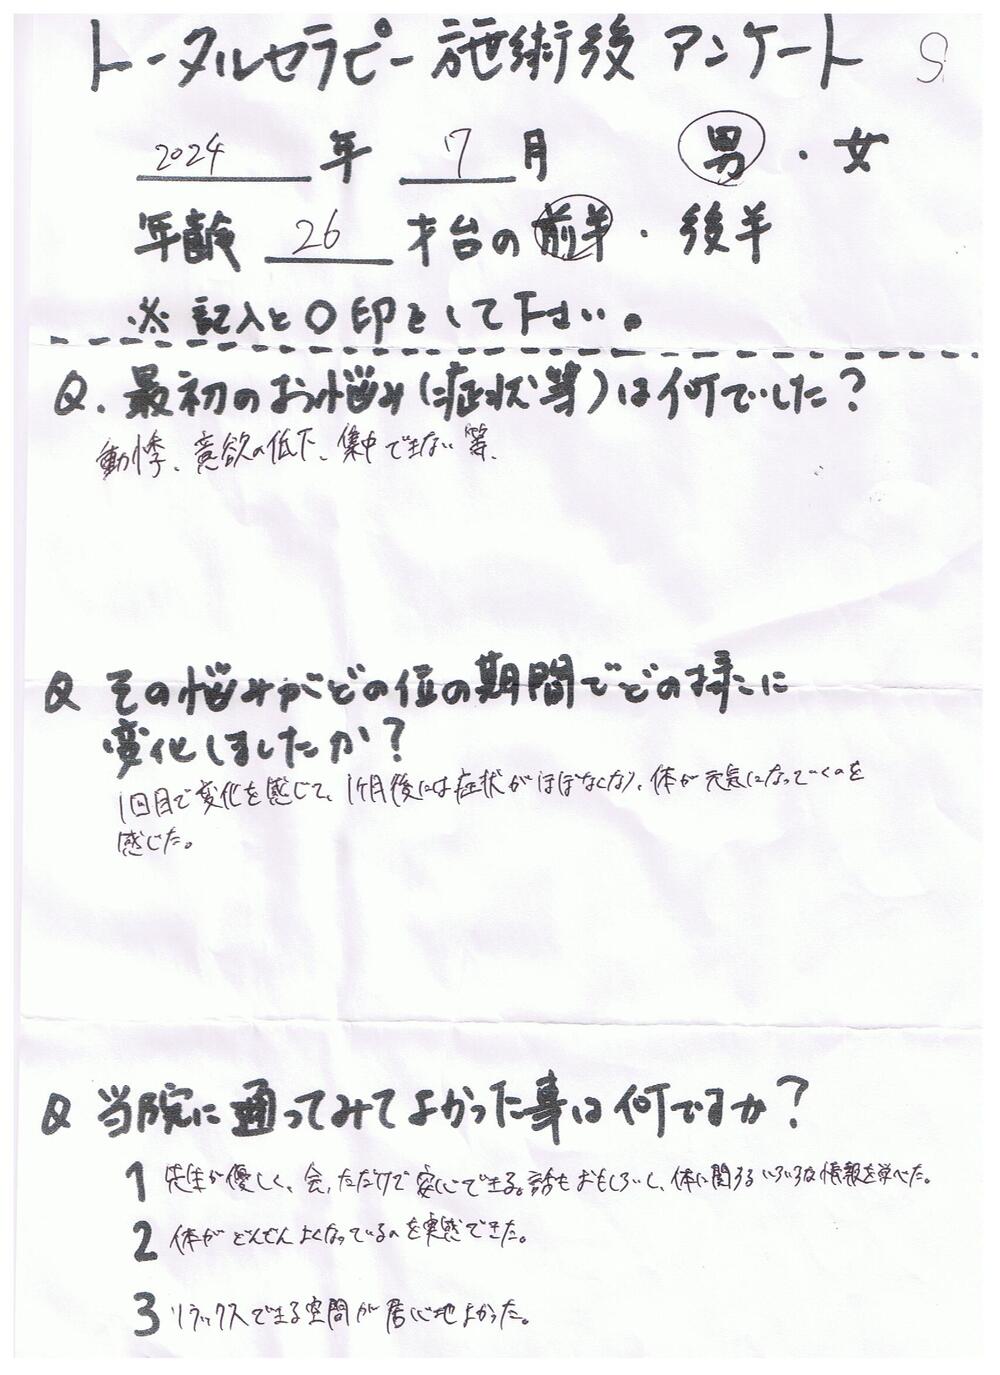 トータルセラピー施術後 アンケート 9
2024 年 7 月 男・女
年齢 26 才台の前半・後半
※記入と〇印をして下さい。
Q. 最初のお悩み(症状等)は何でした?
動悸、意欲の低下、集中できない等、
Q その悩みがどの位の期間でどの様に
変化しましたか?
1回目で変化を感じて、1ヶ月後には症状がほぼなくなり、体が元気になっていくのを
感じた。
Q 当院に通ってみてよかった事は何ですか?
1 先生が優しく、会っただけで安心できる。話もおもしろいし、体に関するいろいろな情報を学べた。
2 体がどんどんよくなっているのを実感できた。
3 リラックスできる空間が居心地よかった。